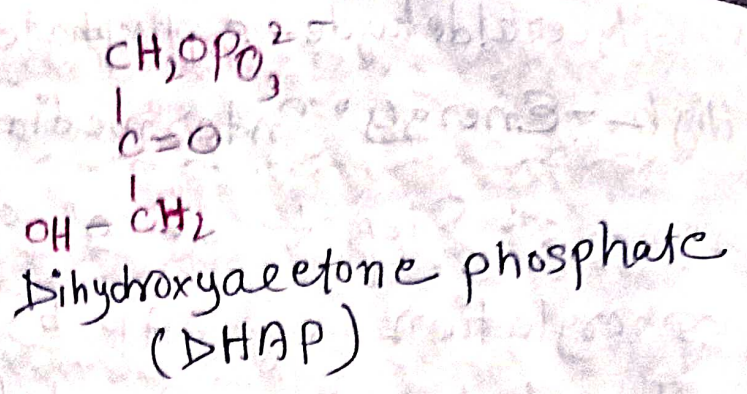 CH₂OPO₃²⁻
|
C=O
|
OH - CH₂
Dihydroxyacetone phosphate
(DHAP)